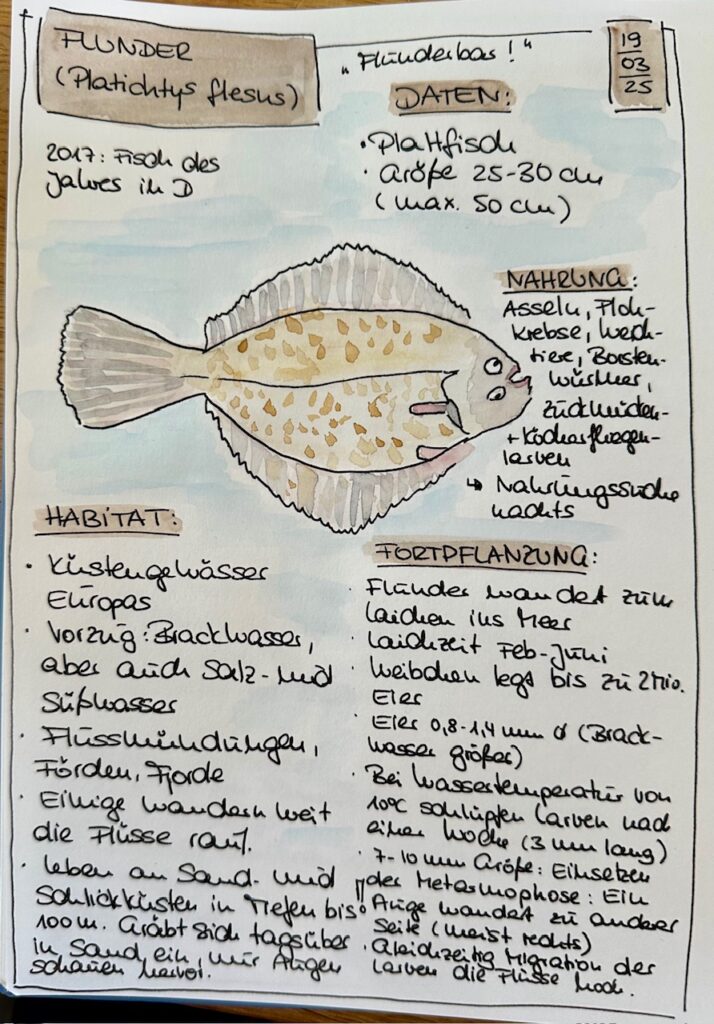 FLUNDER
(Platichtys flesus)
„Flunderbar!“
19
03
25
2017: Fisch des
Jahres in D
DATEN:
• Plattfisch
• Größe 25-30 cm
(max. 50 cm)
NAHRUNG:
Asseln, Floh-
krebse, Weich-
tiere, Borsten-
würmer,
Zuckmücken-
+ Köcherfliegen-
larven
↳ Nahrungssuche
nachts
HABITAT:
• Küstengewässer
Europas
• Vorzug: Brackwasser,
aber auch Salz- und
Süßwasser
• Flussmündungen,
Förden, Fjorde
• Einige wandern weit
die Flüsse rauf.
• leben an Sand- und
Schlickküsten in Tiefen bis
100m. Gräbt sich tagsüber
in Sand ein, nur Augen
schauen hervor.
FORTPFLANZUNG:
• Flunder wandert zum
laichen ins Meer
• Laichzeit Feb-Juni
• Weibchen legt bis zu 2 Mio.
Eier
• Eier 0,8-1,4 mm Ø (Brack-
wasser größer)
• Bei Wassertemperatur von
10°C schlüpfen Larven nach
einer Woche (3 mm lang)
• 7-10 mm Größe: Einsetzen
der Metarmophose: Ein
Auge wandert zu anderer
Seite (meist rechts)
• Gleichzeitig Migration der
Larven die Flüsse hoch.